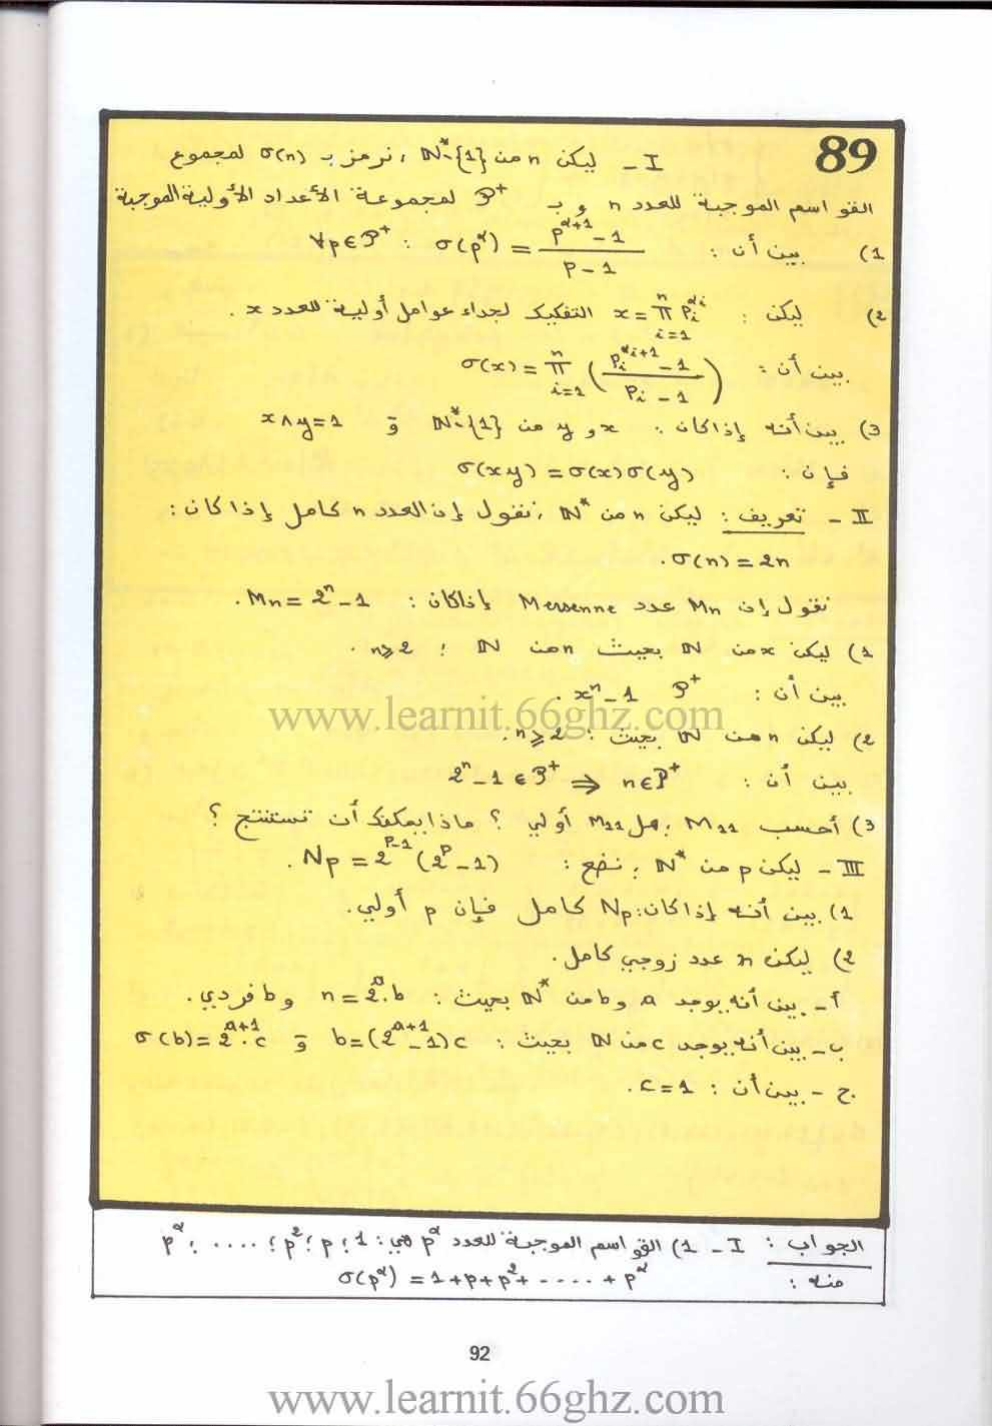 89
I - ليكن n من ℕ*-{1} ، نرمز بـ σ(n) لمجموع
القواسم الموجبة للعدد n و بـ P⁺ لمجموعة الأعداد الأولية الموجبة
1) بين أن : ∀p∈P⁺ : σ(p^α) = (p^(α+1) - 1)/(p - 1)
2) ليكن : x = π_{i=1}^{n} p_i^{α_i} التفكيك لجداء عوامل أولية للعدد x .
بين أن : σ(x) = π_{i=1}^{n} ((p_i^{α_i+1} - 1)/(p_i - 1))
3) بين أنه إذا كان : x و y من ℕ*-{1} و x∧y=1
فإن : σ(xy) = σ(x)σ(y)
II - تعريف : ليكن n من ℕ* ، نقول إن العدد n كامل إذا كان :
σ(n) = 2n .
نقول إن Mn عدد Mersenne إذا كان : Mn = 2ⁿ-1 .
1) ليكن x من ℕ بحيث n من ℕ ؛ n≥2 .
بين أن : P⁺ xⁿ-1 .
2) ليكن n من ℕ بحيث : n≥2 .
بين أن : 2ⁿ-1 ∈ P⁺ ⇒ n∈P⁺
3) أحسب M₁₁ ، هل M₁₁ أولي ؟ ماذا يمكنك أن تستنتج ؟
III - ليكن p من ℕ* ، نضع : Np = 2^(p-1) (2^p - 1) .
1) بين أنه إذا كان : Np كامل فإن p أولي .
2) ليكن n عدد زوجي كامل .
أ - بين أنه يوجد a و b من ℕ* بحيث : n = 2^a.b و b فردي .
ب - بين أنه يوجد c من ℕ بحيث : b = (2^(a+1) - 1)c و σ(b) = 2^(a+1).c
ج - بين أن : c = 1 .
www.learnit.66ghz.com
الجواب : I - 1) القواسم الموجبة للعدد p^α هي : 1 ؛ p ؛ p² ؛ .... ؛ p^α
منه : σ(p^α) = 1+p+p²+ .... + p^α
92
www.learnit.66ghz.com